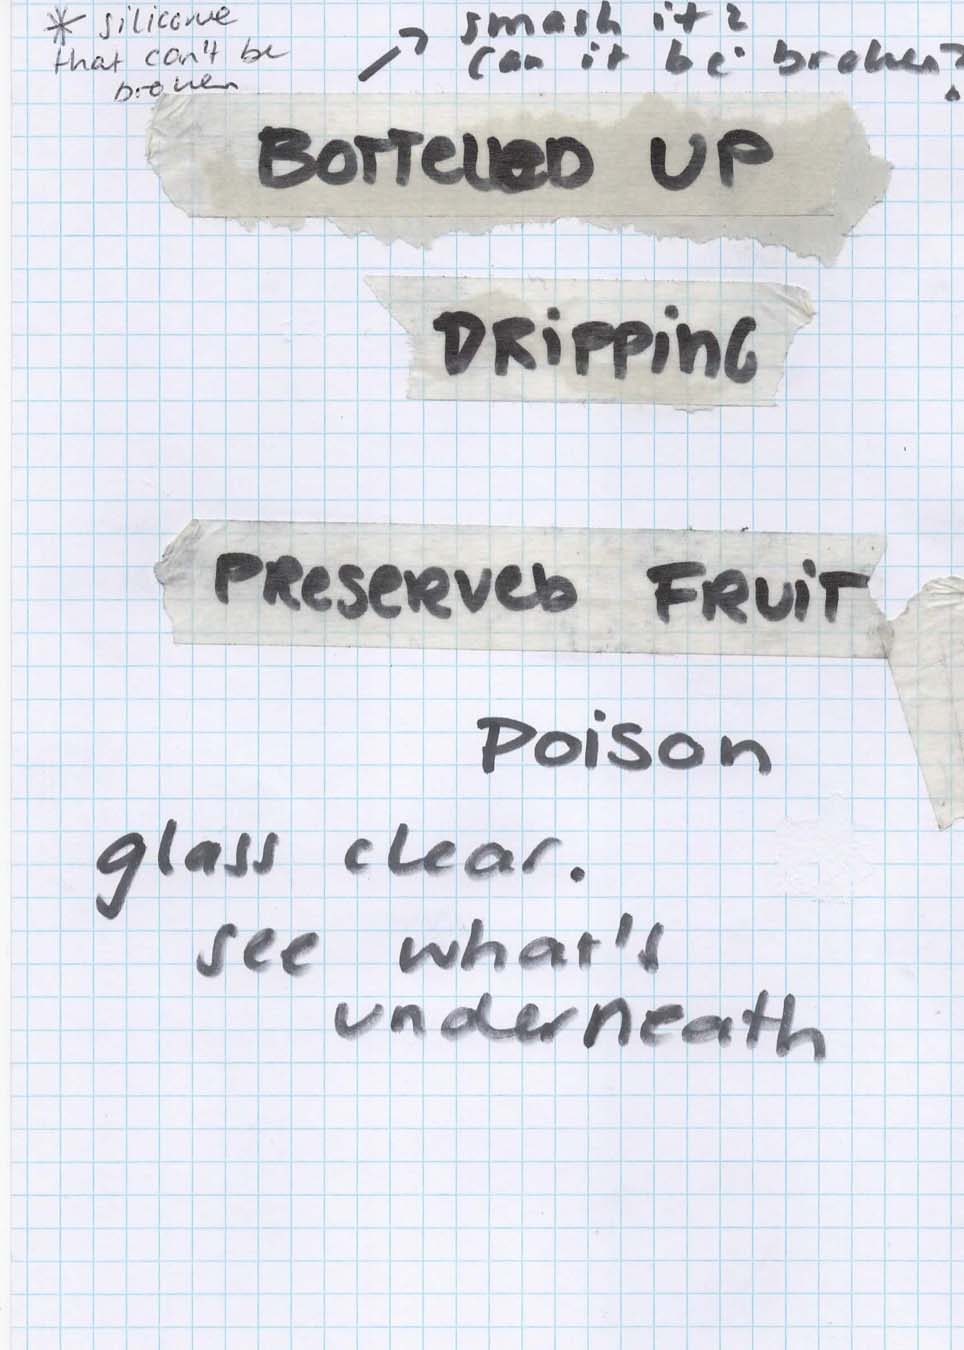 * silicone
that can't be
broken
smash it?
can it be broken?
BOTTELLED UP
DRiPPinG
PReSeRVeD FRUiT
Poison
glass clear.
see what's
underneath